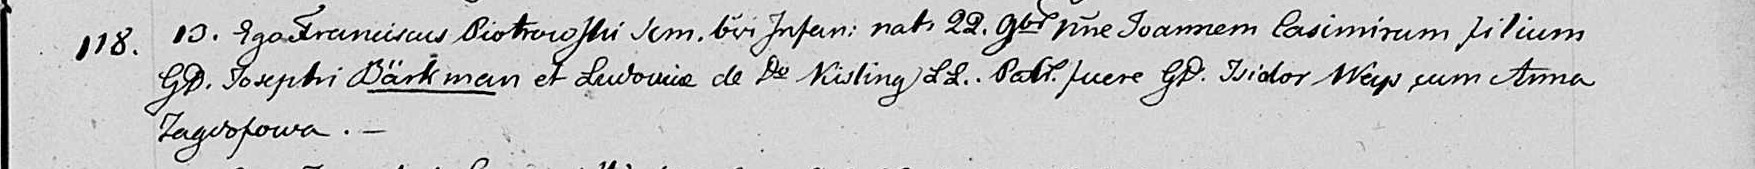 118. 13. Ego Franciscus Piotrowski Km. bvi Infan: nat. 22. 9bris pñe Joannem Casimirum filium
GD. Josephi Bärkman et Ludovicæ de Do Kisling LL. Patr. fuere GD. Isidor Weys cum Anna
.–